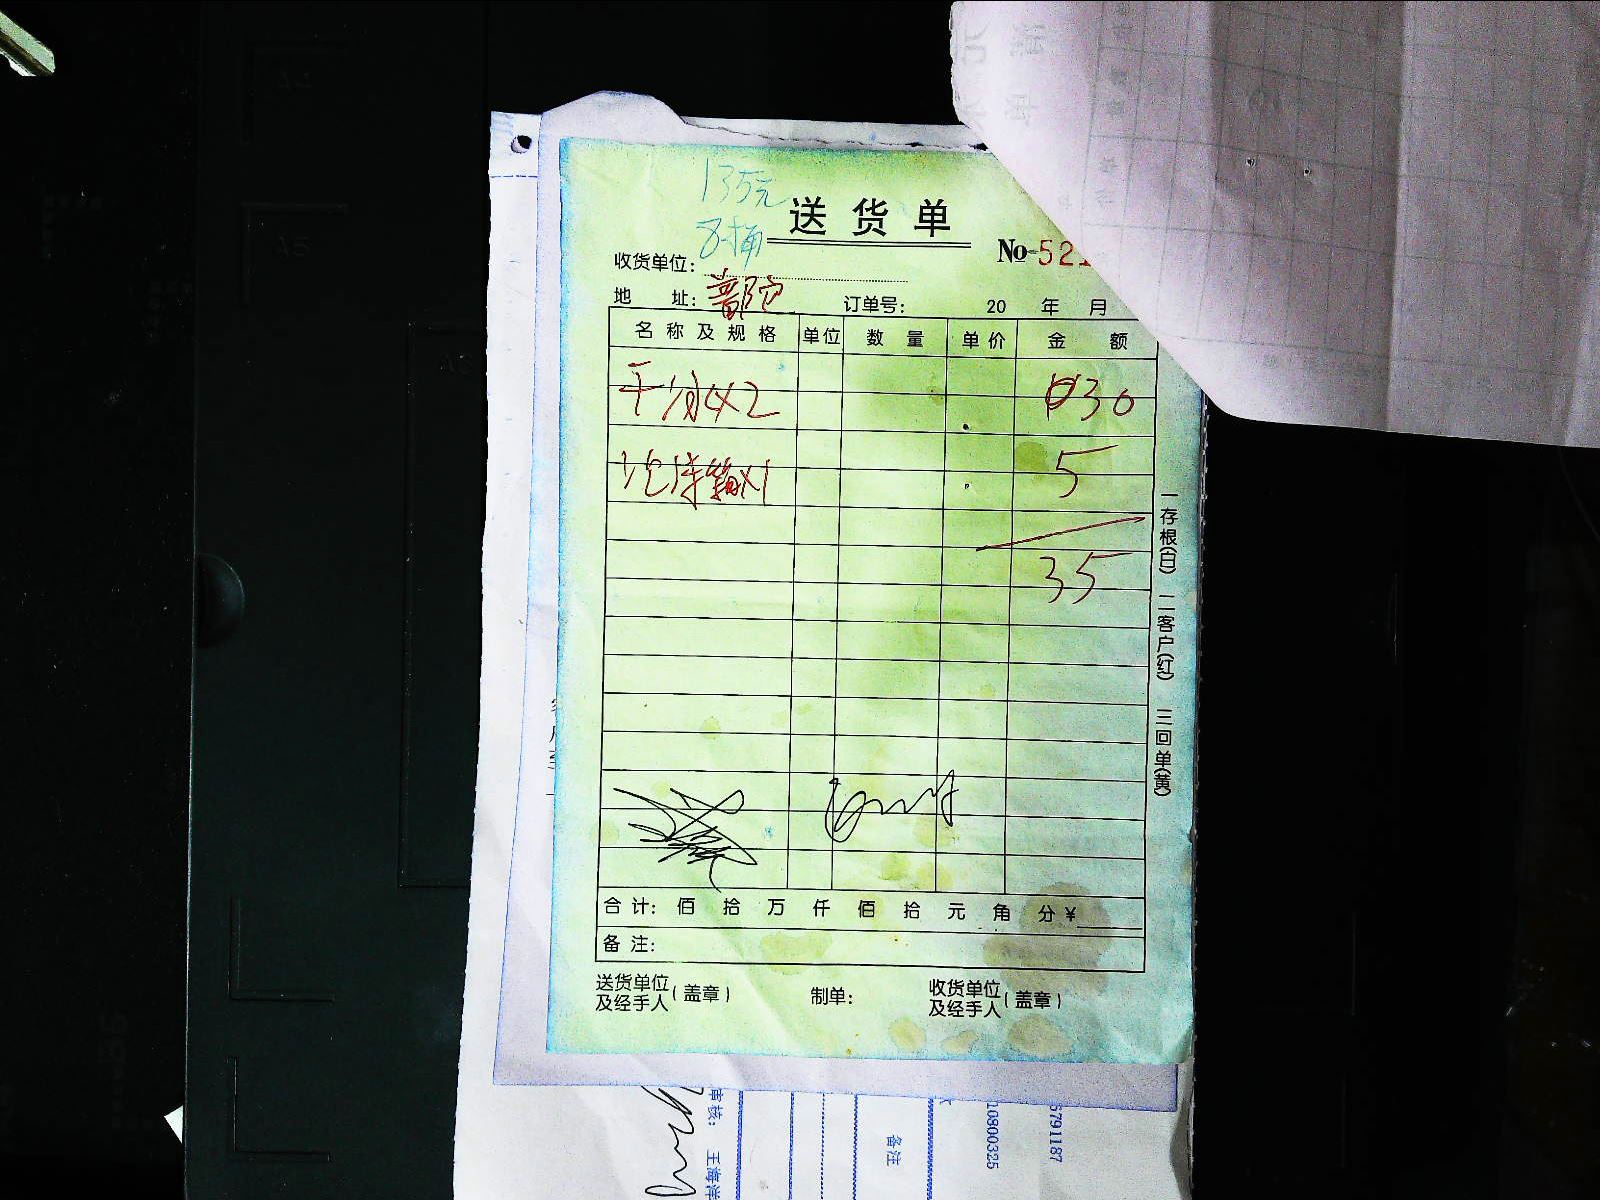 135元
8桶
送货单
№ 521
收货单位:
地 址: 普陀 订单号: 20 年 月
名称及规格 单位 数量 单价 金额
干分4X2 30
5
35
合计: 佰 拾 万 仟 佰 拾 元 角 分 ¥
备注:
送货单位及经手人(盖章) 制单: 收货单位及经手人(盖章)
一存根(白) 二客户(红) 三回单(黄)
审核: 王海洋
备注
10800325
6791187
A5